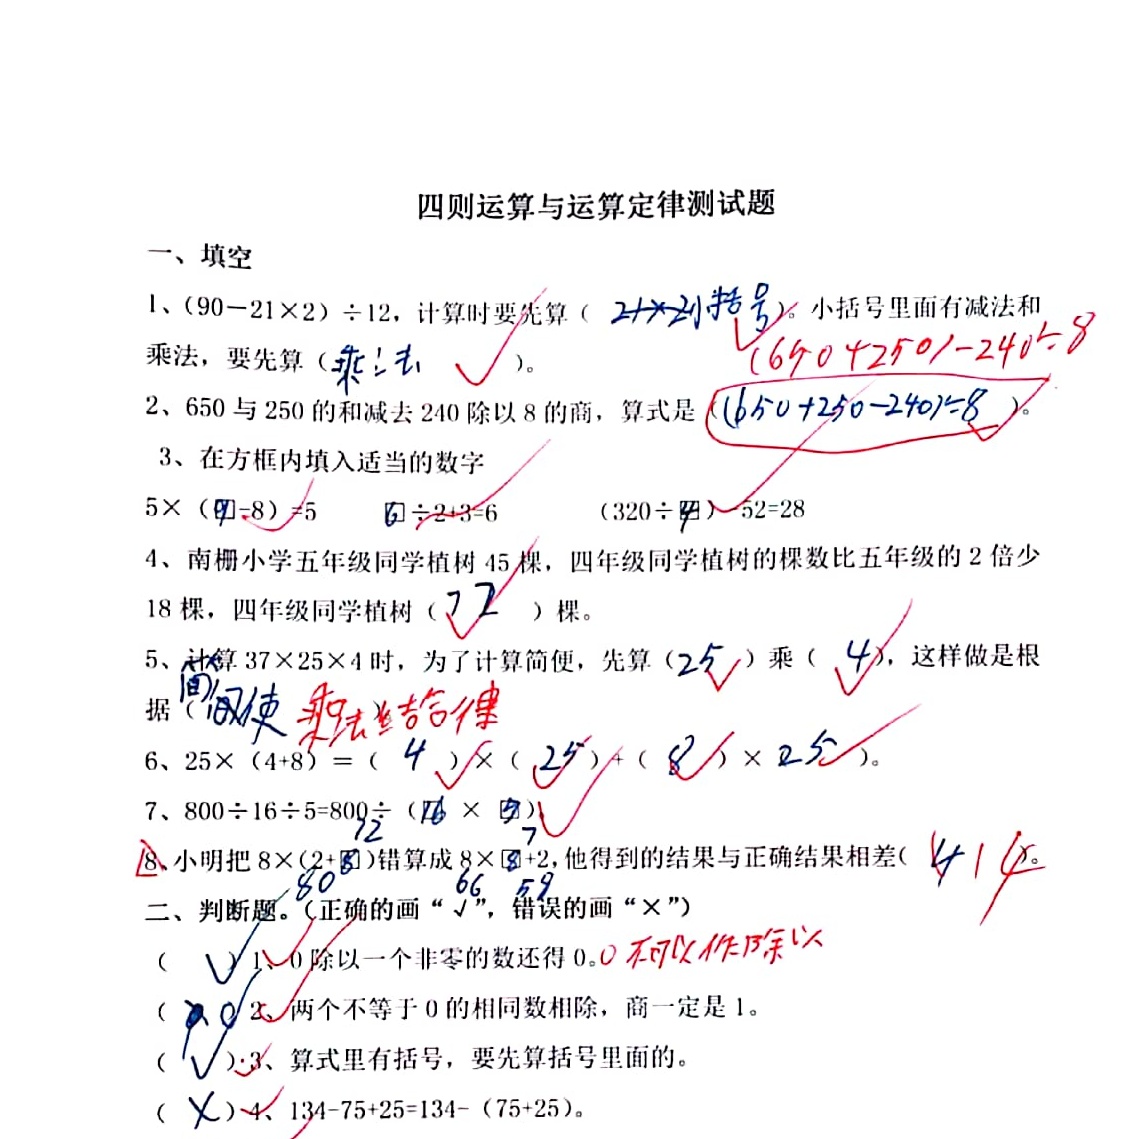 四则运算与运算定律测试题
一、填空
1、(90－21×2)÷12，计算时要先算（ 小括号 ）。小括号里面有减法和
乘法，要先算（ 乘法 ）。
(650+250)-240÷8
2、650 与 250 的和减去 240 除以 8 的商，算式是（(650+250-240)÷8）。
3、在方框内填入适当的数字
5×（9-8）=5 6÷2+3=6 （320÷4）-52=28
4、南栅小学五年级同学植树 45 棵，四年级同学植树的棵数比五年级的 2 倍少
18 棵，四年级同学植树（ 72 ）棵。
5、计算 37×25×4 时，为了计算简便，先算（25）乘（ 4 ），这样做是根
据（ 乘法结合律
6、25×（4+8）＝（ 4 ）×（ 25 ）+（ 8 ）× 25 ）。
7、800÷16÷5=800÷（16 × 5）
72 7
8、小明把 8×(2+8)错算成 8×8+2，他得到的结果与正确结果相差( 14 )。
80 66 59
二、判断题。（正确的画“√”，错误的画“×”）
（ √ ）1、0 除以一个非零的数还得 0。0不可以作除以
（ ）2、两个不等于 0 的相同数相除，商一定是 1。
（ √ ）3、算式里有括号，要先算括号里面的。
（ X ）4、134-75+25=134-（75+25）。